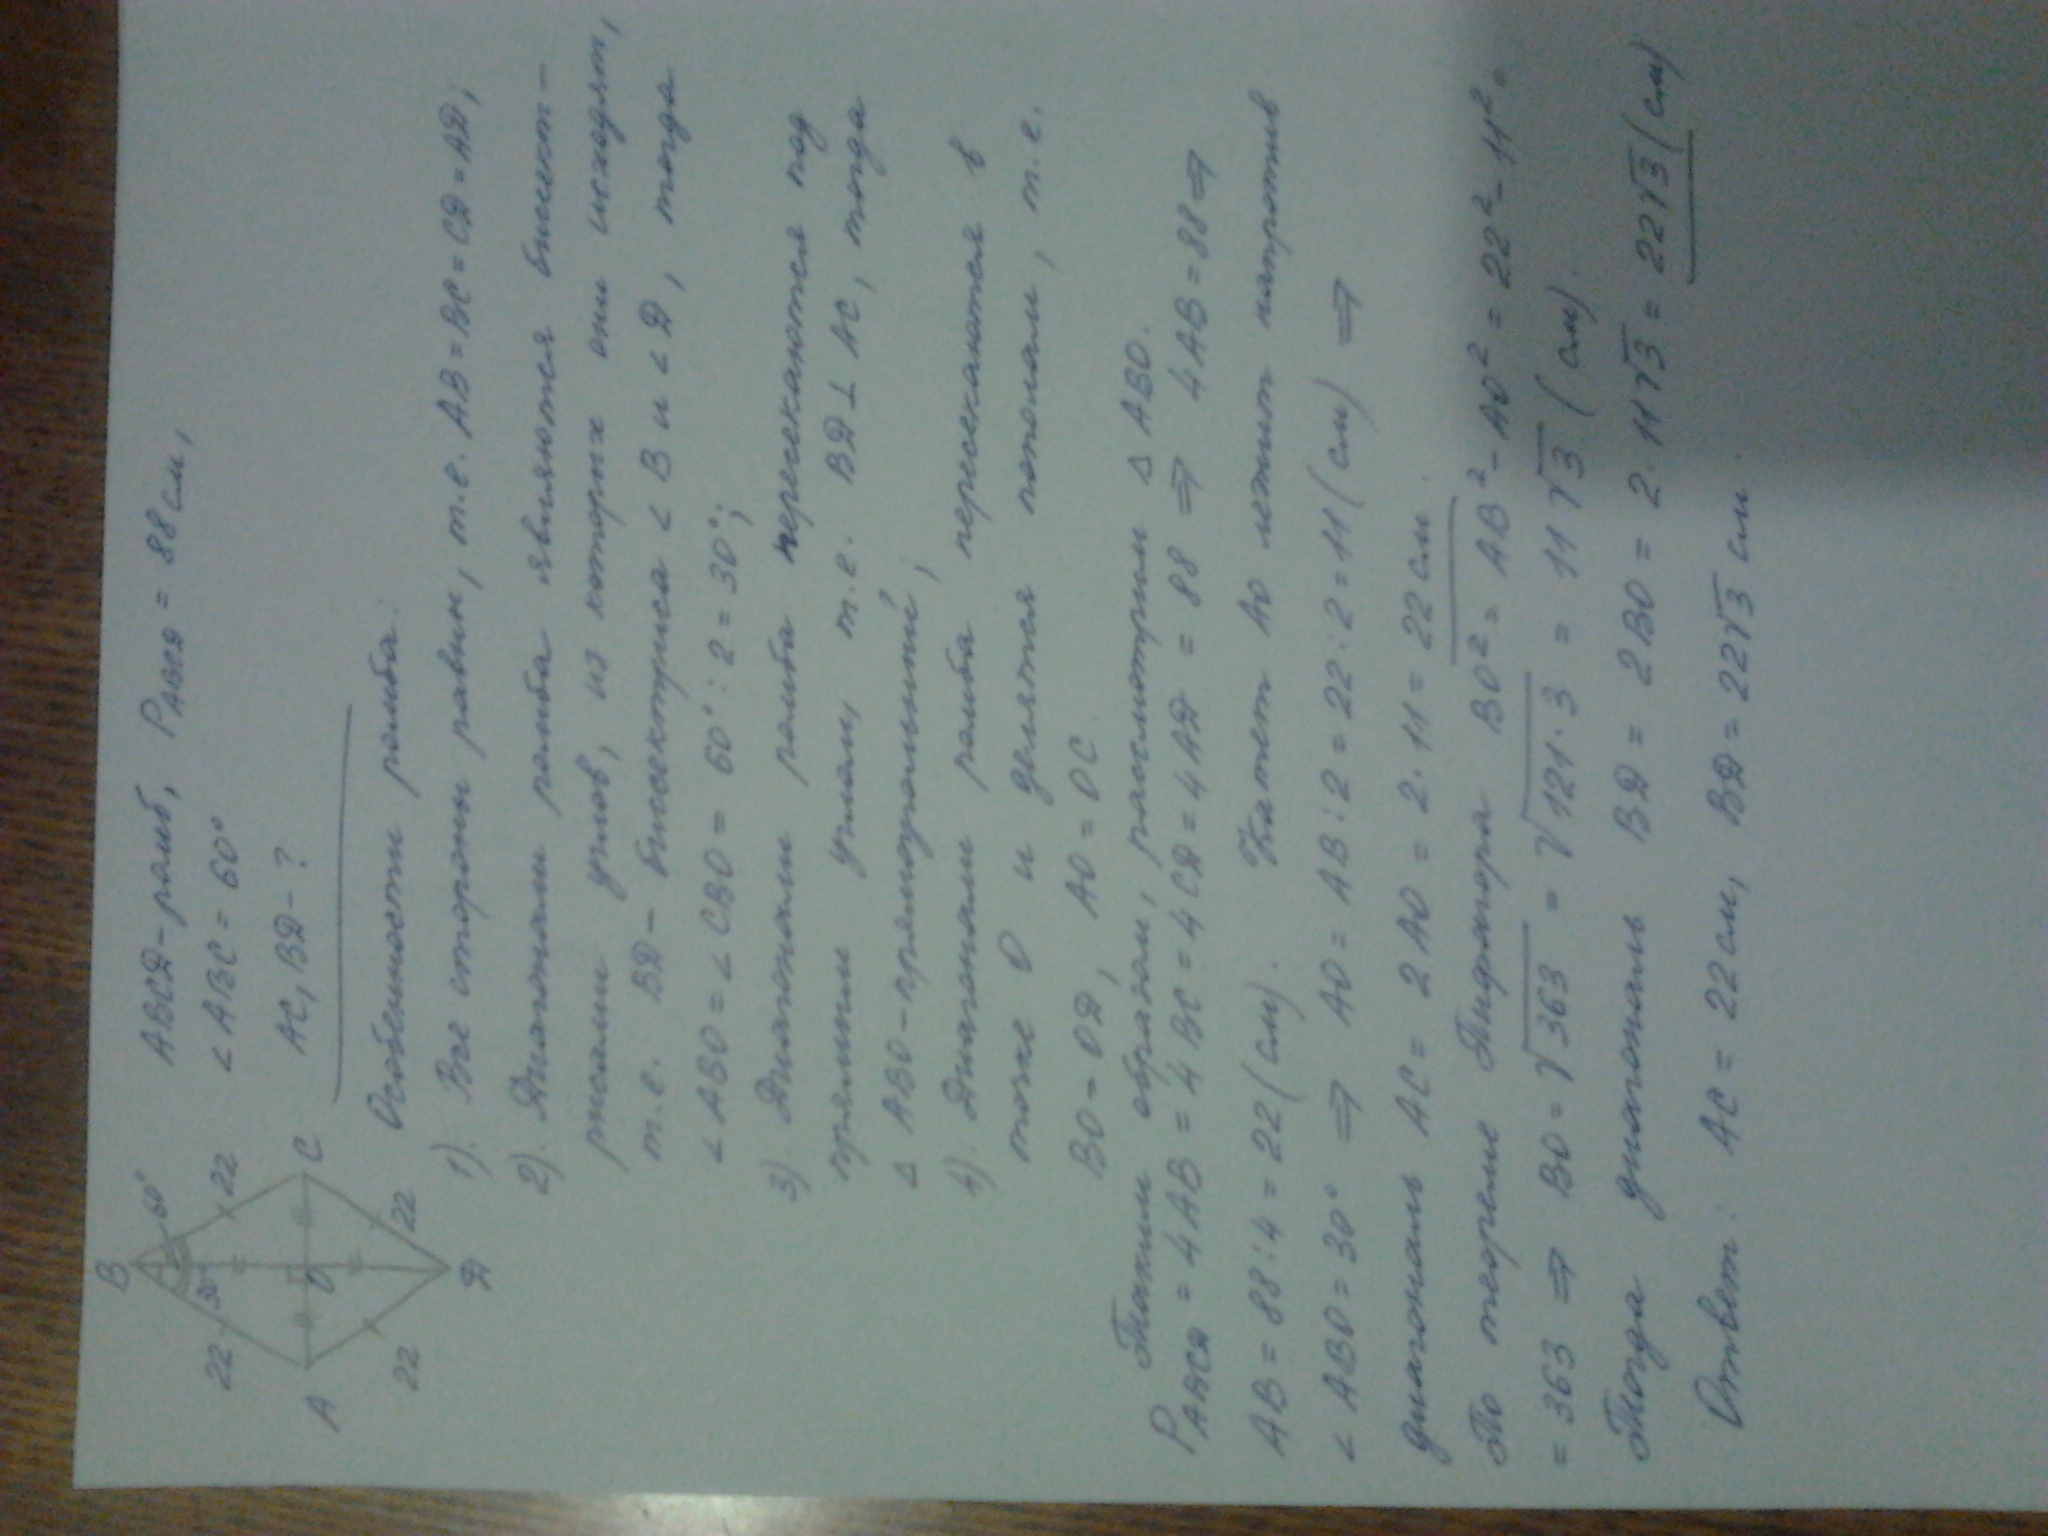 B
60°
30°
22
22
A
O
C
22
22
Д
ABCД - ромб, P ABCД = 88 см,
∠ ABC = 60°
AC, BД - ?
Особенности ромба:
1). Все стороны равны, т.е. AB = BC = CД = AД;
2). Диагонали ромба являются биссект-
рисами углов, из которых они исходят,
т.е. BД - биссектриса ∠ B и ∠ Д, тогда
∠ ABO = ∠ CBO = 60° : 2 = 30°;
3). Диагонали ромба пересекаются под
прямым углом, т.е. BД ⊥ AC, тогда
Δ ABO - прямоугольный;
4). Диагонали ромба пересекаются в
точке O и делятся пополам, т.е.
BO = OД, AO = OC.
Таким образом, рассмотрим Δ ABO.
P ABCД = 4 AB = 4 BC = 4 CД = 4 AД = 88 ⇒ 4 AB = 88 ⇒
AB = 88 : 4 = 22 (см). Катет AO лежит напротив
∠ ABO = 30° ⇒ AO = AB : 2 = 22 : 2 = 11 (см) ⇒
диагональ AC = 2 AO = 2 · 11 = 22 см.
По теореме Пифагора BO² = AB² - AO² = 22² - 11² =
= 363 ⇒ BO = √363 = √121 · 3 = 11 √3 (см).
Тогда диагональ BД = 2 BO = 2 · 11√3 = 22√3 (см)
Ответ: AC = 22 см, BД = 22√3 см.